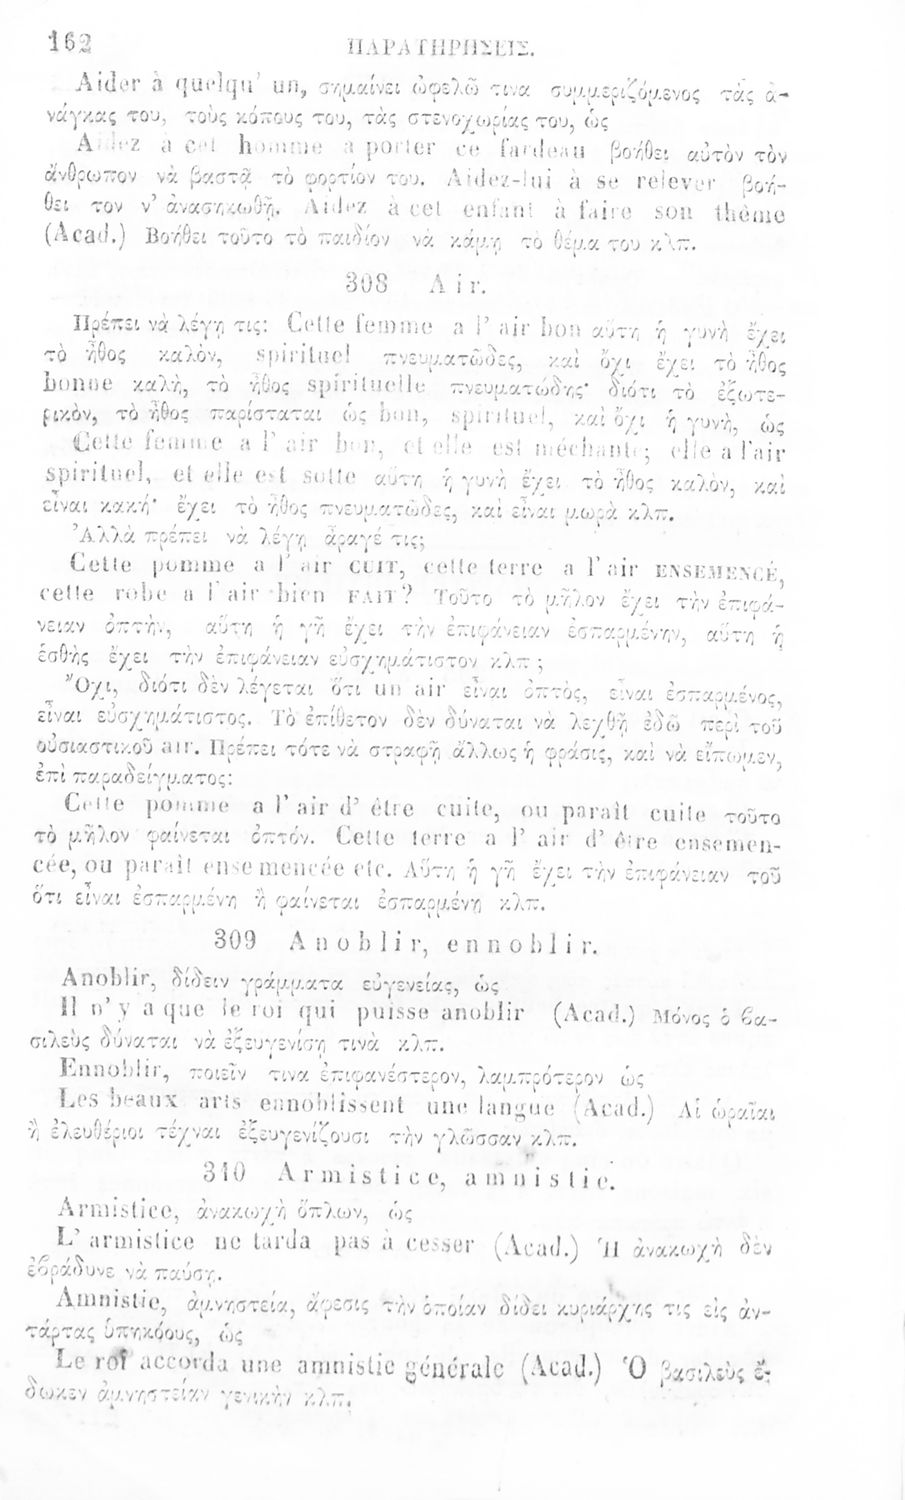 162 ΠΑΡΑΤΗΡΗΣΕΙΣ.
Aider à quelqu' un, σημαίνει ὠφελῶ τινα συμμεριζόμενος τὰς ἀ-
νάγκας του, τοὺς κόπους του, τὰς στενοχωρίας του, ὡς
Aidez à cet homme à porter ce fardeau βοήθει αὐτὸν τὸν
ἄνθρωπον νὰ βαστᾷ τὸ φορτίον του. Aidez-lui à se relever βοή-
θει τον ν' ἀνασηκωθῇ. Aidez à cet enfant à faire son thême
(Acad.) Βοήθει τοῦτο τὸ παιδίον νὰ κάμῃ τὸ θέμα του κλπ.
308 Air.
Πρέπει νὰ λέγῃ τις: Cette femme a l' air bon αὕτη ἡ γυνὴ ἔχει
τὸ ἦθος καλὸν, spirituel πνευματῶδες, καὶ ὄχι ἔχει τὸ ἦθος
bonne καλὴ, τὸ ἦθος spirituelle πνευματώδης· διότι τὸ ἐξωτε-
ρικὸν, τὸ ἦθος παρίσταται ὡς bon, spirituel, καὶ ὄχι ἡ γυνὴ, ὡς
Cette femme a l' air bon, et elle est méchante; elle a l'air
spirituel, et elle est sotte αὕτη ἡ γυνὴ ἔχει τὸ ἦθος καλὸν, καὶ
εἶναι κακή· ἔχει τὸ ἦθος πνευματῶδες, καὶ εἶναι μωρὰ κλπ.
Ἀλλὰ πρέπει νὰ λέγῃ ἆραγέ τις;
Cette pomme a l' air CUIT, cette terre a l' air ENSEMENCÉ,
cette robe a l' air bien FAIT? Τοῦτο τὸ μῆλον ἔχει τὴν ἐπιφά-
νειαν ὀπτὴν, αὕτη ἡ γῆ ἔχει τὴν ἐπιφάνειαν ἐσπαρμένην, αὕτη ἡ
ἐσθὴς ἔχει τὴν ἐπιφάνειαν εὐσχημάτιστον κλπ;
Ὄχι, διότι δὲν λέγεται ὅτι un air εἶναι ὀπτὸς, εἶναι ἐσπαρμένος,
εἶναι εὐσχημάτιστος. Τὸ ἐπίθετον δὲν δύναται νὰ λεχθῇ ἐδῶ περὶ τοῦ
οὐσιαστικοῦ air. Πρέπει τότε νὰ στραφῇ ἄλλως ἡ φράσις, καὶ νὰ εἴπωμεν,
ἐπὶ παραδείγματος:
Cette pomme a l' air d' être cuite, ou paraît cuite τοῦτο
τὸ μῆλον φαίνεται ὀπτόν. Cette terre a l' air d' être ensemen-
cée, ou paraît ensemencée etc. Αὕτη ἡ γῆ ἔχει τὴν ἐπιφάνειαν τοῦ
ὅτι εἶναι ἐσπαρμένη ἢ φαίνεται ἐσπαρμένη κλπ.
309 Anoblir, ennoblir.
Anoblir, δίδειν γράμματα εὐγενείας, ὡς
Il n' y a que le roi qui puisse anoblir (Acad.) Μόνος ὁ βα-
σιλεὺς δύναται νὰ ἐξευγενίσῃ τινὰ κλπ.
Ennoblir, ποιεῖν τινα ἐπιφανέστερον, λαμπρότερον ὡς
Les beaux arts ennoblissent une langue (Acad.) Αἱ ὡραῖαι
ἢ ἐλευθέριοι τέχναι ἐξευγενίζουσι τὴν γλῶσσαν κλπ.
310 Armistice, amnistie.
Armistice, ἀνακωχὴ ὅπλων, ὡς
L' armistice ne tarda pas à cesser (Acad.) Ἡ ἀνακωχὴ δὲν
ἐβράδυνε νὰ παύσῃ.
Amnistie, ἀμνηστεία, ἄφεσις τὴν ὁποίαν δίδει κυριάρχης τις εἰς ἀν-
τάρτας ὑπηκόους, ὡς
Le roi accorda une amnistie générale (Acad.) Ὁ βασιλεὺς ἔ-
δωκεν ἀμνηστείαν γενικὴν κλπ.